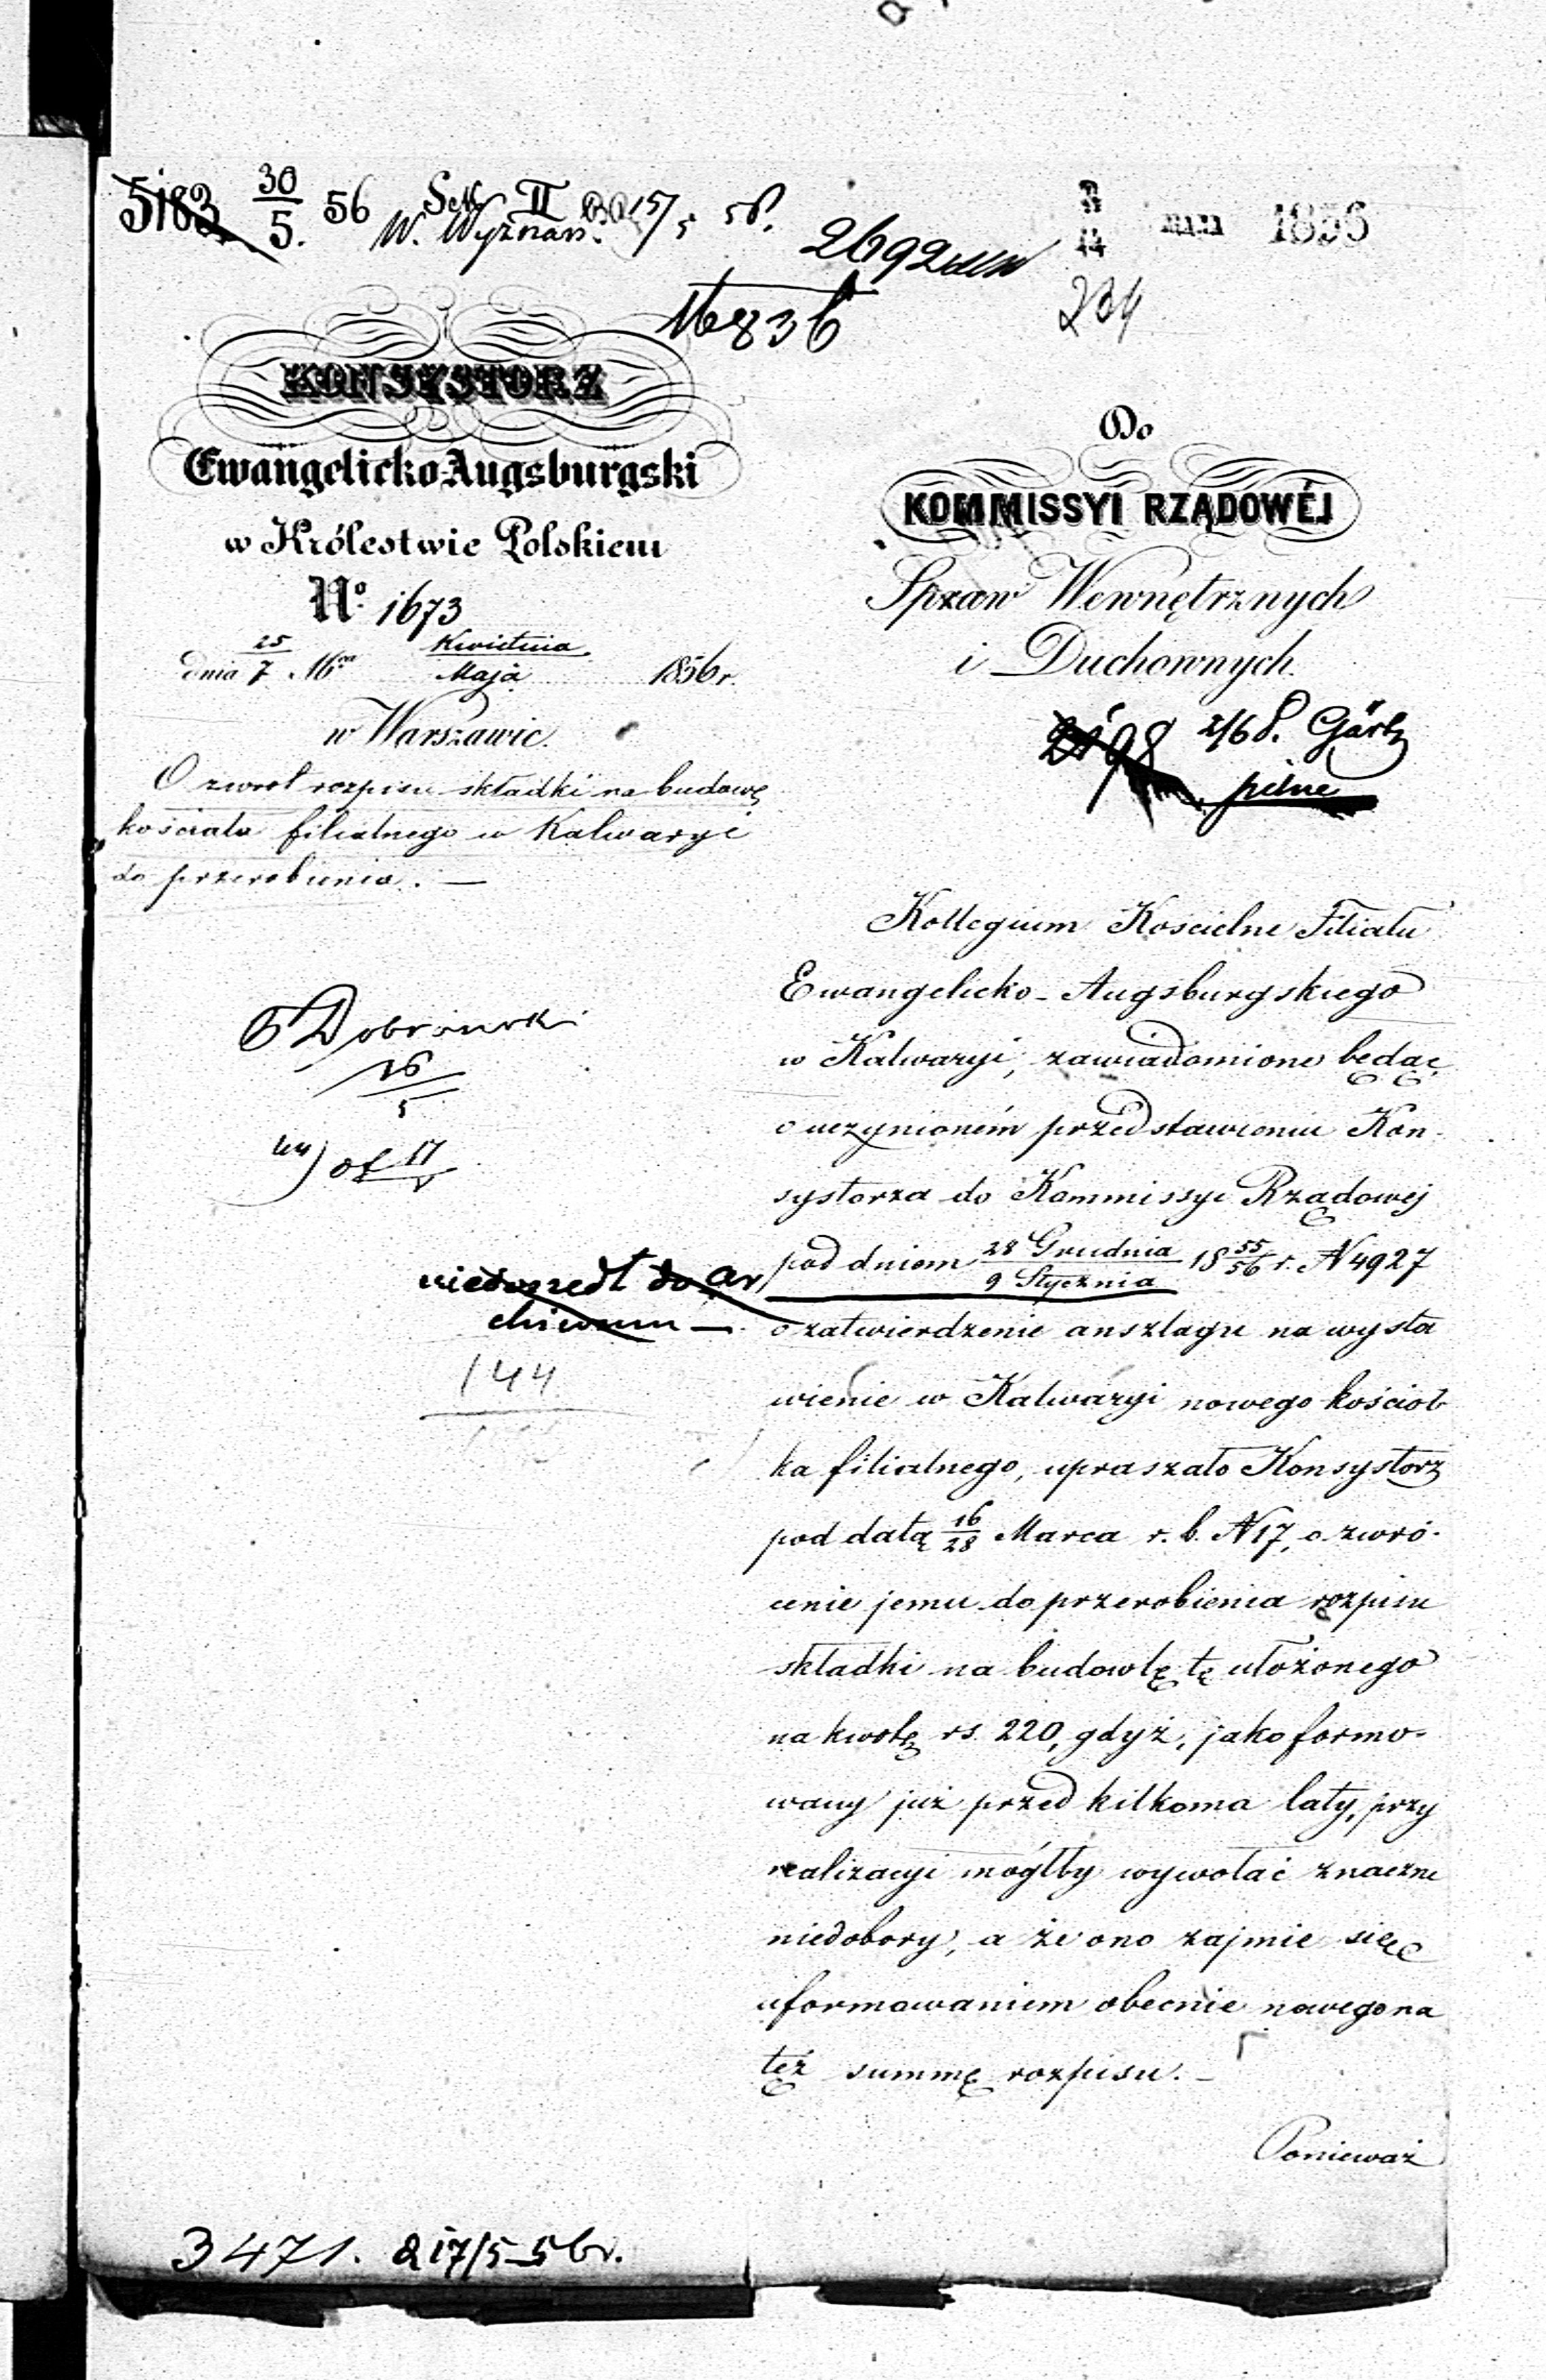 5183 30/5. 56 Sekc II
W. Wyznań. 15/5 56.
2692
16836
2/14 MAJA 1856
234
KONSYSTORZ
Ewangelicko-Augsburgski
w Królestwie Polskiem
No. 1673
dnia 25/7 Kwietnia/Maja 1856 r.
w Warszawie.
O zwrot rozpisu składki na budowę
kościoła filialnego w Kalwaryi
do przerobienia. —
Do
KOMMISSYI RZĄDOWÉJ
Spraw Wewnętrznych
i Duchownych.
2/6 Görtz
pilne
Dobrowski
16/5
17/V
nieodszedł do ar
chiwum —
144
Kollegium Kościelne Filiału
Ewangelicko-Augsburgskiego
w Kalwaryi, zawiadomione będąc
o uczynioném przedstawieniu Kon-
systorza do Kommissyi Rządowej
pod dniem 28 Grudnia/9 Stycznia 18 55/56 r. N 4927
o zatwierdzenie anszlagu na wysta
wienie w Kalwaryi nowego kościoł
ka filialnego, upraszało Konsystorz
pod datą 16/28 Marca r. b. N 17, o zwró-
cenie jemu do przerobienia rozpisu
składki na budowlę tę ułożonego
na kwotę rs. 220, gdyż, jako formo-
wany już przed kilkoma laty, przy
realizacyi mógłby wywołać znaczne
niedobory, a że ono zajmie się
uformowaniem obecnie nowego na
też summę rozpisu. —
Ponieważ
3471. d 17/5 56 r.